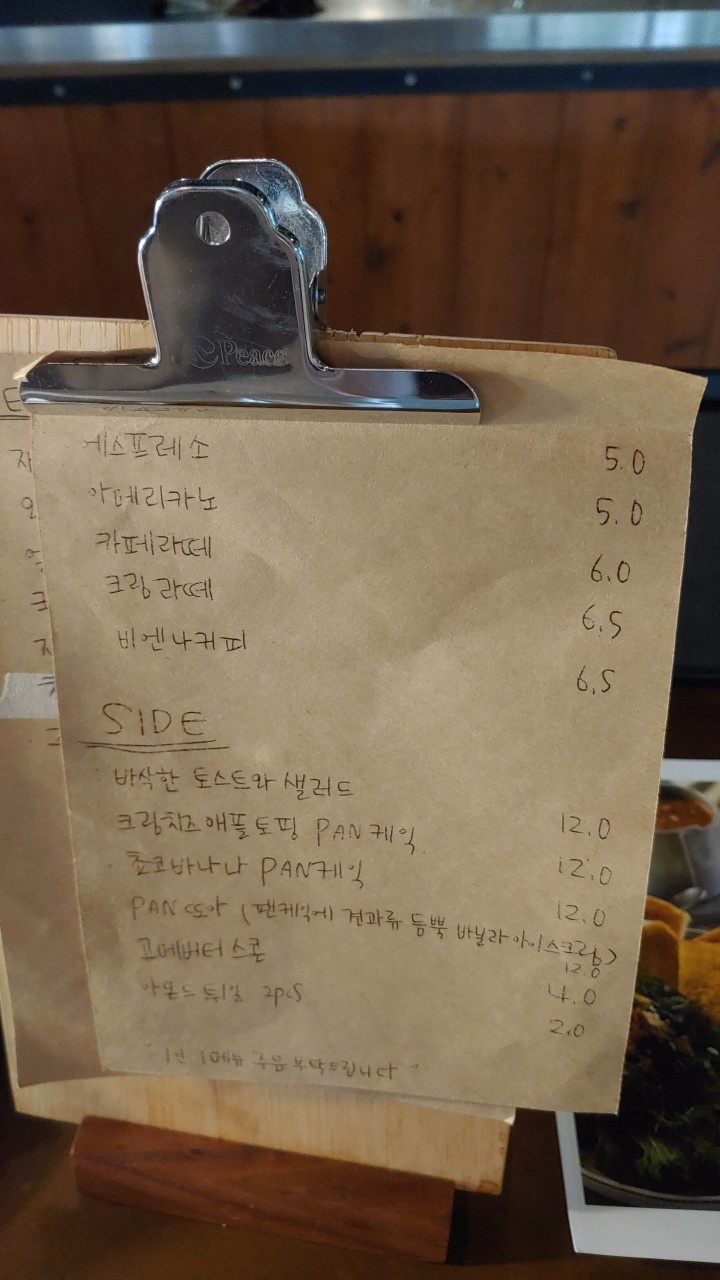 Peace
에스프레소 5.0
아메리카노 5.0
카페라떼 6.0
크랑라떼 6.5
비엔나커피 6.5
SIDE
바삭한 토스트와 샐러드 12.0
크랑치즈애플토핑 PAN케익 12.0
쵸코바나나 PAN케익 12.0
PAN 또아 (팬케익에 견과류 듬뿍 바닐라아이스크림) 12.0
고메버터스콘 4.0
아몬드튀일 2pcs 2.0
1인 1메뉴 주음 부탁드립니다